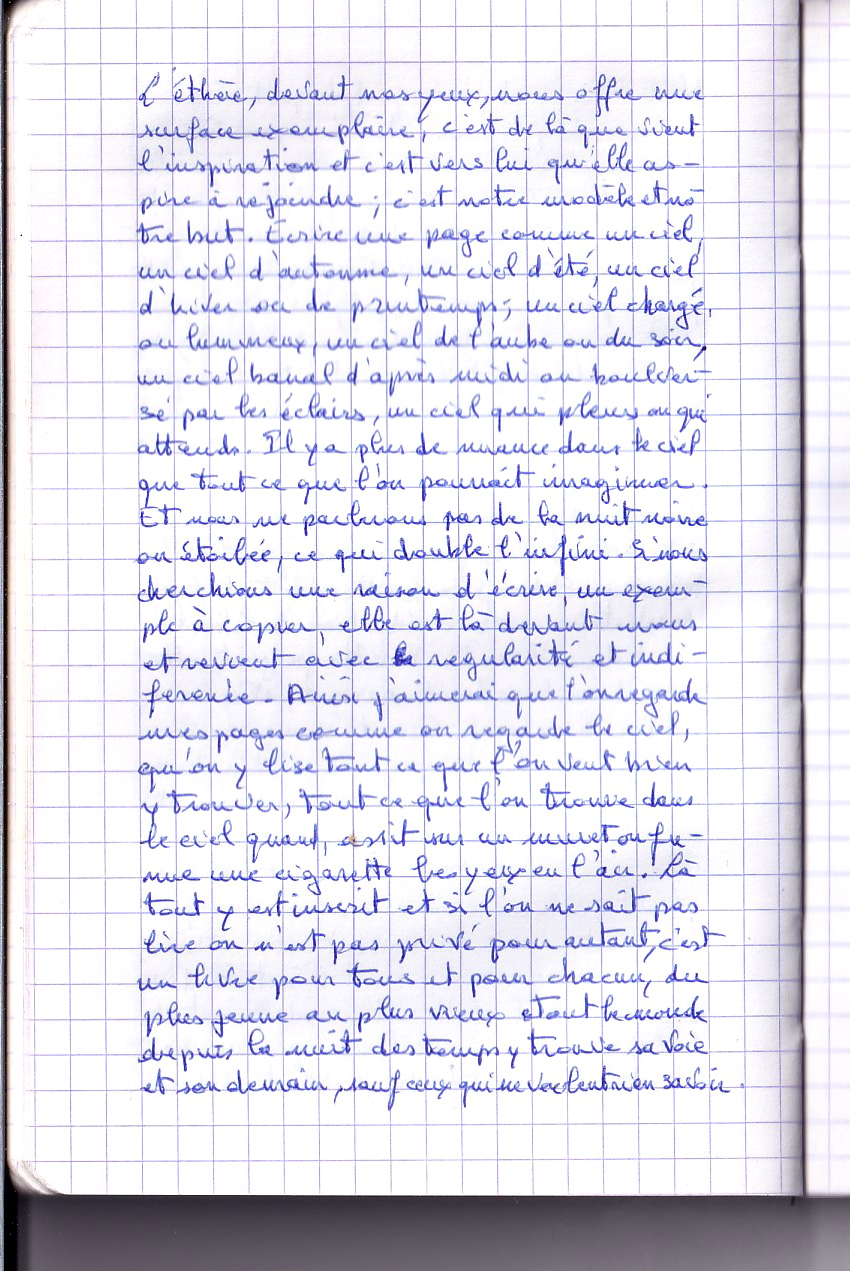 L'éthère, devant nos yeux, nous offre une
surface exemplaire, c'est de là que vient
l'inspiration et c'est vers lui qu'elle as-
pire à rejoindre ; c'est notre modèle et no
tre but. Ecrire une page comme un ciel,
un ciel d'automne, un ciel d'été, un ciel
d'hiver ou de printemps ; un ciel chargé,
ou lumineux, un ciel de l'aube ou du soir,
un ciel banal d'après midi ou boulver-
sé par les éclairs, un ciel qui pleure ou qui
attends. Il y a plus de nuance dans le ciel
que tout ce que l'on pourrait imaginer.
Et nous ne parlerons pas de la nuit noire
ou étoilée, ce qui double l'infini. Si nous
cherchions une raison d'écrire, un exem-
ple à copier, elle est là devant nous
et revient avec régularité et indi-
férence. Ainsi j'aimerai que l'on regarde
mes pages comme on regarde le ciel,
qu'on y lise tout ce que l'on veut bien
y trouver, tout ce que l'on trouve dans
le ciel quand, assit sur un muret on fu-
me une cigarette les yeux en l'air. Là
tout y est inscrit et si l'on ne sait pas
lire on n'est pas privé pour autant, c'est
un livre pour tous et pour chacun, du
plus jeune au plus vieux et tout le monde
depuis la nuit des temps y trouve sa voie
et son demain, sauf ceux qui ne veulent rien savoir.